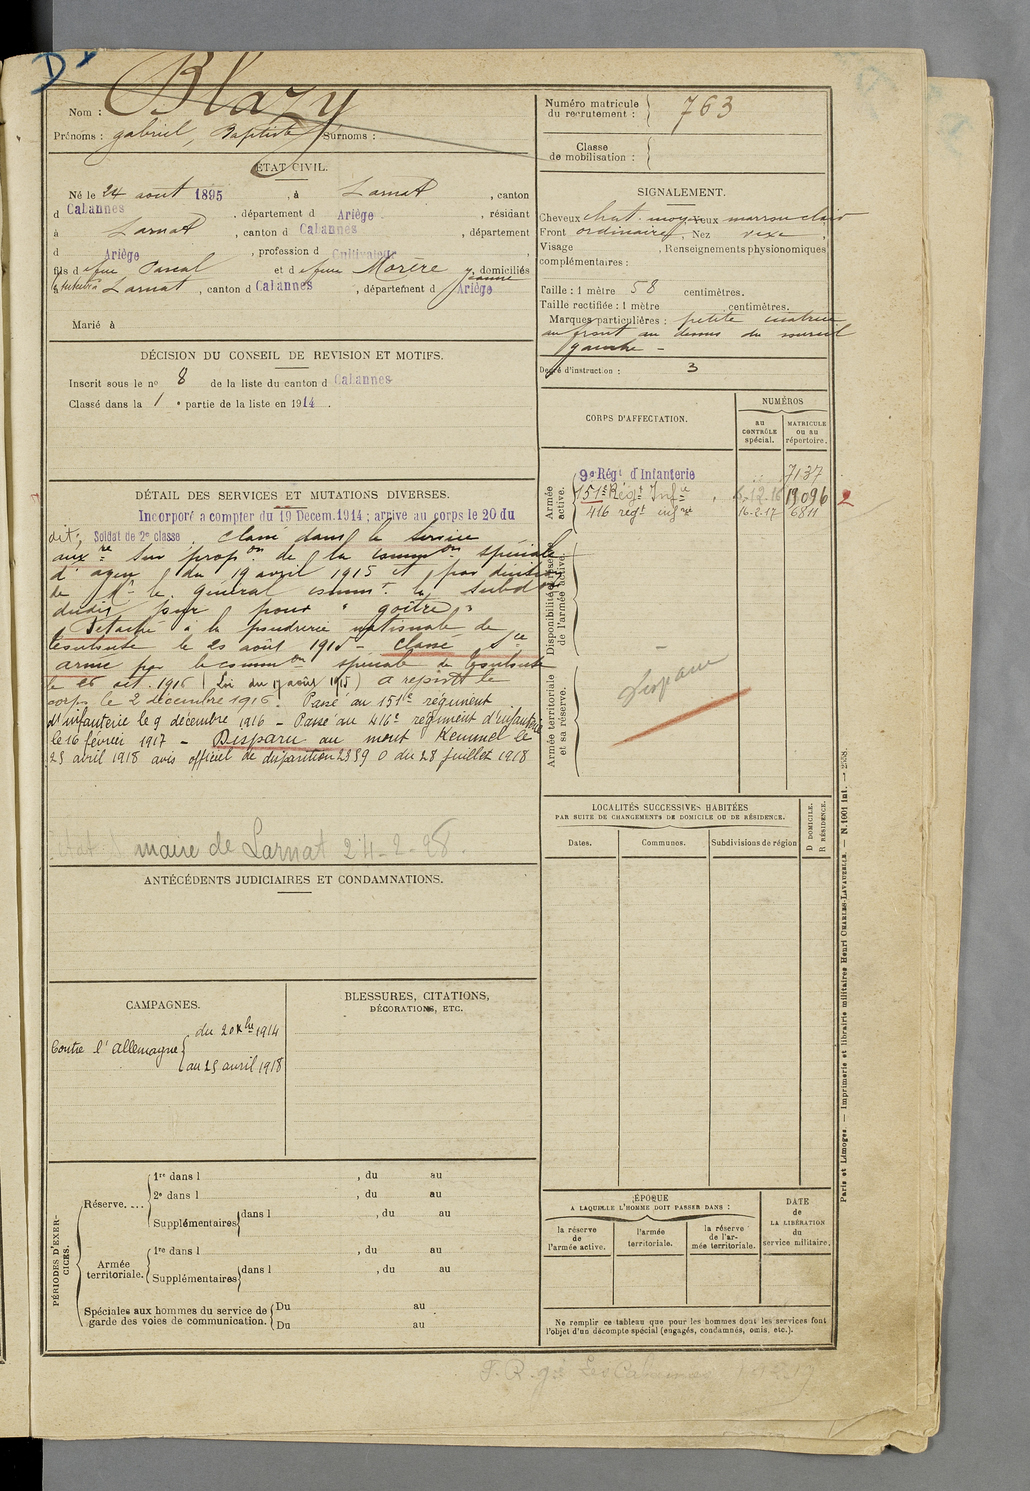 D
Nom : Blazy
Prénoms : gabriel, Baptiste Surnoms :
ÉTAT CIVIL.
Né le 24 aout 1895, à Larnat, canton
d Cabannes, département d Ariège, résidant
à Larnat, canton d Cabannes, département
d Ariège, profession d Cultivateur,
fils d efeu Pascal et d efeue Morère Jeanne, domiciliés
à Larnat, canton d Cabannes, département d Ariège
Marié à
DÉCISION DU CONSEIL DE REVISION ET MOTIFS.
Inscrit sous le no 8 de la liste du canton d Cabannes
Classé dans la 1 e partie de la liste en 1914.
DÉTAIL DES SERVICES ET MUTATIONS DIVERSES.
Incorporé a compter du 19 Decem. 1914 ; arrive au corps le 20 du
dit; Soldat de 2e classe. Classé dans le service
auxre sur propon de la common spéciale
d'agen du 19 avril 1915 et par décision
de Mr le général commt la subdon
dudit jour pour "goitre"
Détaché à la poudrerie nationale de
Toulouse le 25 août 1915 - classé sce
armé par la common spéciale de Toulouse
le 26 oct. 1916 (Loi du 17 août 1915) a rejoint le
corps le 2 décembre 1916. Passé au 151e régiment
d'infanterie le 9 décembre 1916 - Passé au 416e régiment d'infanterie
le 16 février 1917 - Disparu au mont Kemmel le
25 avril 1918 avis officiel de disparition 2559 O du 28 juillet 1918
maire de Larnat 24-2-28.
ANTÉCÉDENTS JUDICIAIRES ET CONDAMNATIONS.
CAMPAGNES.
Contre l'Allemagne { du 20 Xbre 1914
au 25 avril 1918
BLESSURES, CITATIONS,
DÉCORATIONS, ETC.
PÉRIODES D'EXERCICES.
Réserve....
1re dans l , du au
2e dans l , du au
Supplémentaires dans l , du au
Armée territoriale.
1re dans l , du au
Supplémentaires dans l , du au
Spéciales aux hommes du service de
garde des voies de communication.
Du au
Du au
Numéro matricule
du recrutement : 763
Classe
de mobilisation :
SIGNALEMENT.
Cheveux chat. moyen Yeux marron clair
Front ordinaire, Nez vexe,
Visage , Renseignements physionomiques
complémentaires :
Taille : 1 mètre 58 centimètres.
Taille rectifiée : 1 mètre centimètres.
Marques particulières : petite cicatrice
au front au dessus du sourcil
gauche -
Degré d'instruction : 3
CORPS D'AFFECTATION.
NUMÉROS
au
CONTRÔLE
spécial.
MATRICULE
ou au
répertoire.
Armée
active.
9e Régt d'Infanterie 7137
151e Régt Infie 8-12-16 19096 2
416 régt infrie 16-2-17 6811
Disponibilité et réserve
de l'armée active.
Disparu
Armée territoriale
et sa réserve.
LOCALITÉS SUCCESSIVES HABITÉES
PAR SUITE DE CHANGEMENTS DE DOMICILE OU DE RÉSIDENCE.
Dates.
Communes.
Subdivisions de région
D DOMICILE.
R RÉSIDENCE.
ÉPOQUE
A LAQUELLE L'HOMME DOIT PASSER DANS :
la réserve
de
l'armée active.
l'armée
territoriale.
la réserve
de l'ar-
mée territoriale.
DATE
de
LA LIBÉRATION
du
service militaire.
Ne remplir ce tableau que pour les hommes dont les services font
l'objet d'un décompte spécial (engagés, condamnés, omis, etc.).
Paris et Limoges. — Imprimerie et librairie militaires Henri CHARLES-LAVAUZELLE. — N. 1001 Int. — 2558.